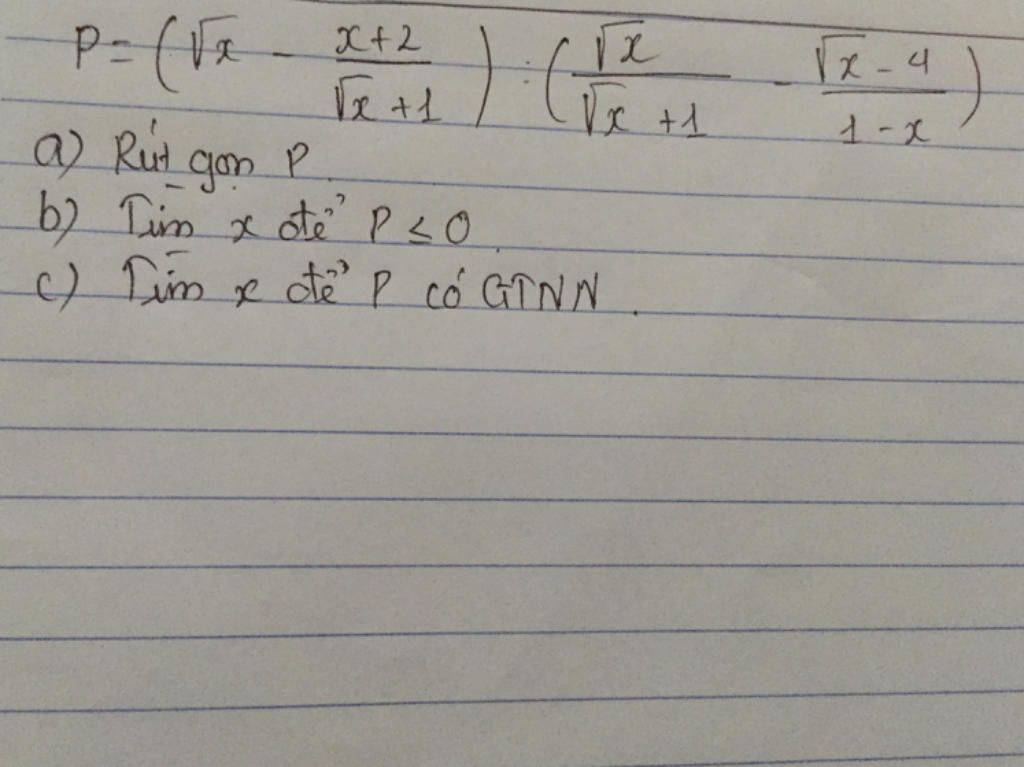 P = (√x - (x+2)/(√x +1)) : (√x/(√x +1) - (√x - 4)/(1 - x))
a) Rút gọn P.
b) Tìm x để P ≤ 0.
c) Tìm x để P có GTNN.